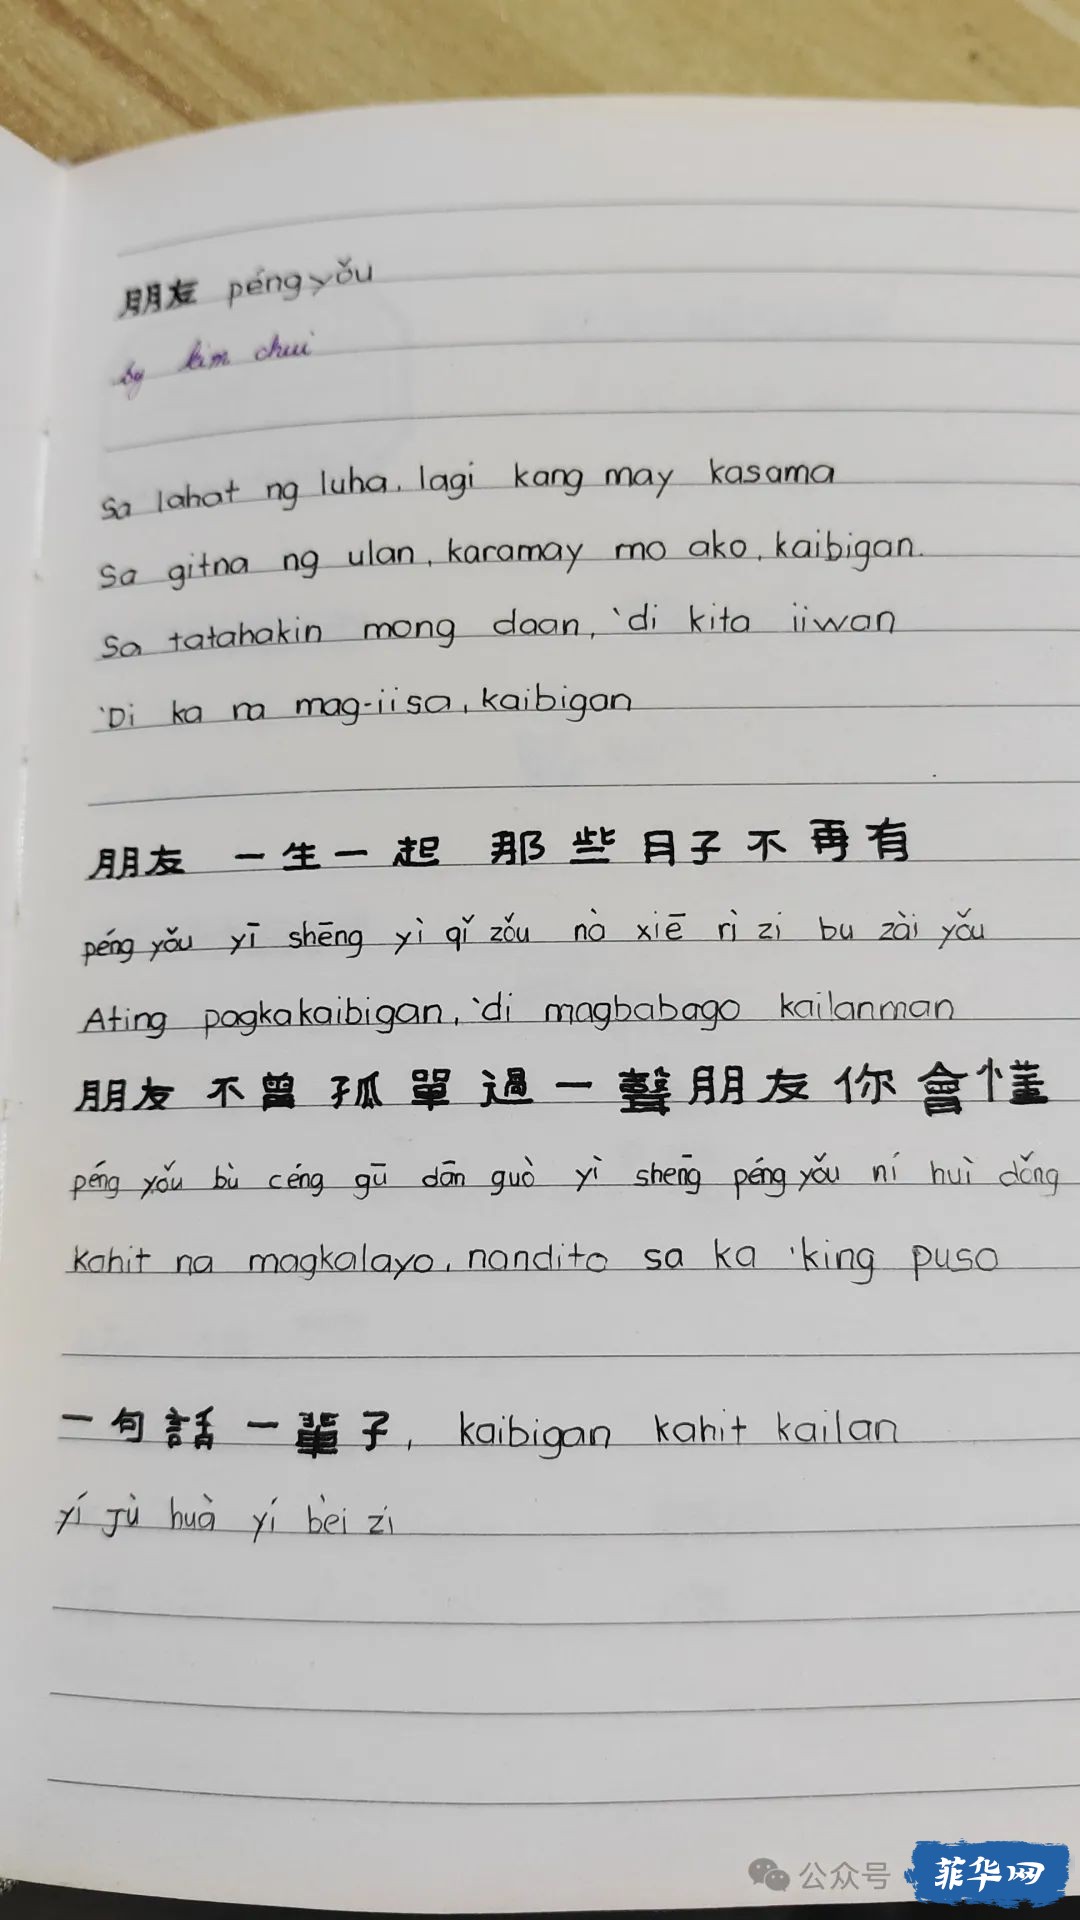 朋友 péngyǒu
by kim chui
Sa lahat ng luha, lagi kang may kasama
Sa gitna ng ulan, karamay mo ako, kaibigan.
Sa tatahakin mong daan, 'di kita iiwan
'Di ka na mag-iisa, kaibigan
朋友 一生一起 那些日子不再有
péng yǒu yī shēng yì qǐ zǒu nà xiē rì zi bu zài yǒu
Ating pagkakaibigan, 'di magbabago kailanman
朋友 不曾孤單過 一聲朋友你會懂
péng yǒu bù céng gū dān guò yì shēng péng yǒu ní huì dǒng
Kahit na magkalayo, nandito sa ka 'king puso
一句話一輩子, kaibigan kahit kailan
yí jù huà yí bèi zi
公众号 菲华网